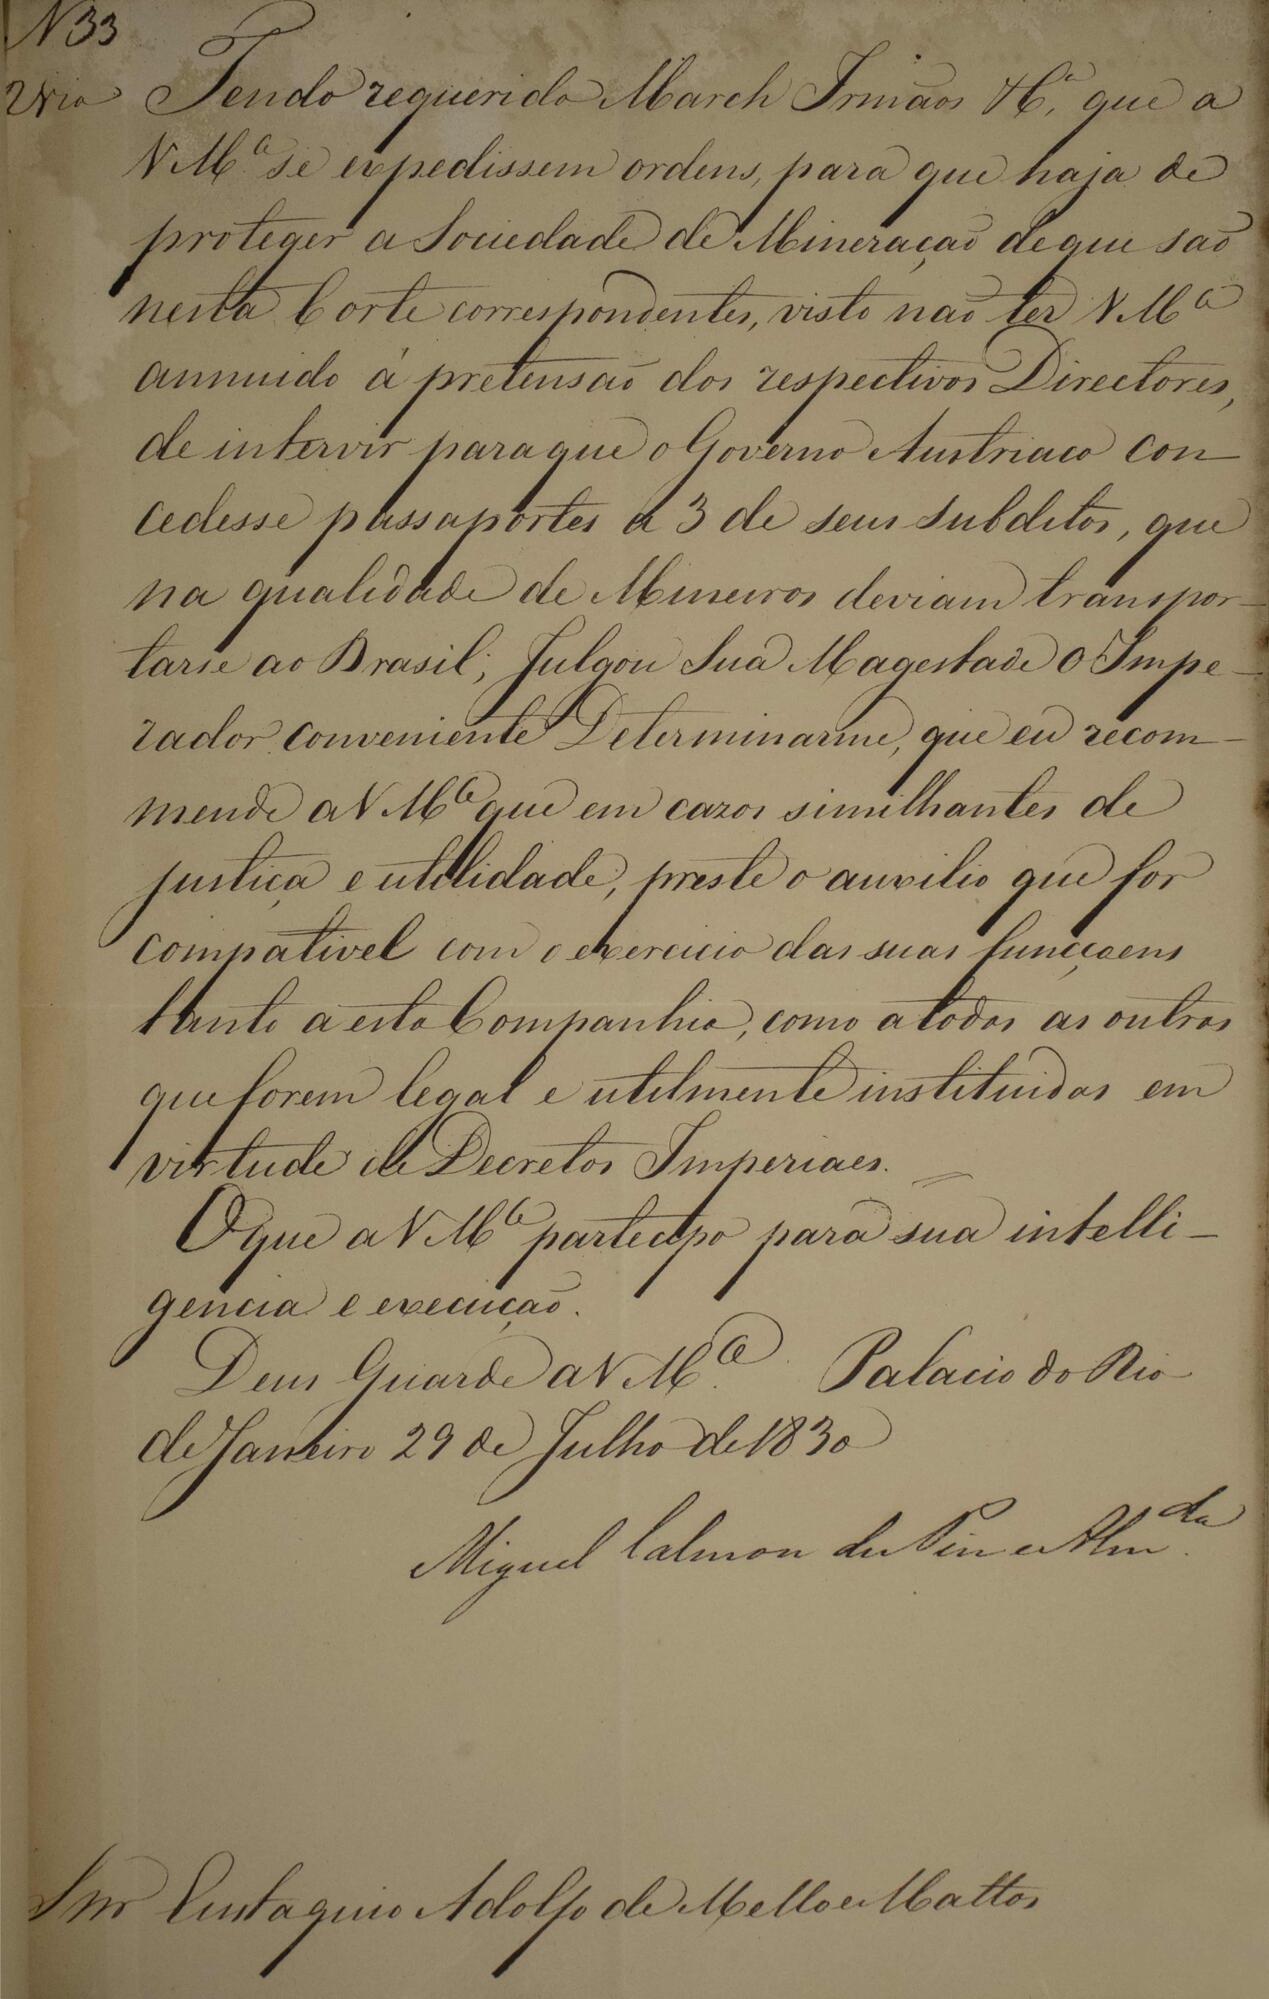 N 33
2ª via Tendo requerido March Irmãos & Cª, que a
V Mce se expedissem ordens, para que haja de
proteger a Sociedade de Mineração de que são
nesta Corte correspondentes, visto não ter V Mce
annuido á pretensão dos respectivos Directores,
de intervir para que o Governo Austriaco con-
cedesse passaportes a 3 de seus subditos, que
na qualidade de Mineiros deviam transpor-
tarse ao Brasil; Julgou Sua Magestade O Impe-
rador conveniente Determinarme, que eu recom-
mende a V Mce que em cazos similhantes de
justiça e utilidade, preste o auxilio que for
compativel com o exercicio das suas funcçoens
tanto a esta Companhia, como a todas as outras
que forem legal e utilmente instituidas em
virtude de Decretos Imperiaes.
O que a V Mce participo para sua intelli-
gencia e execução.
Deus Guarde a V Mce. Palacio do Rio
de Janeiro 29 de Julho de 1830
Miguel Calmon du Pin e Almda
Snr Eustaquio Adolfo de Mello e Mattos